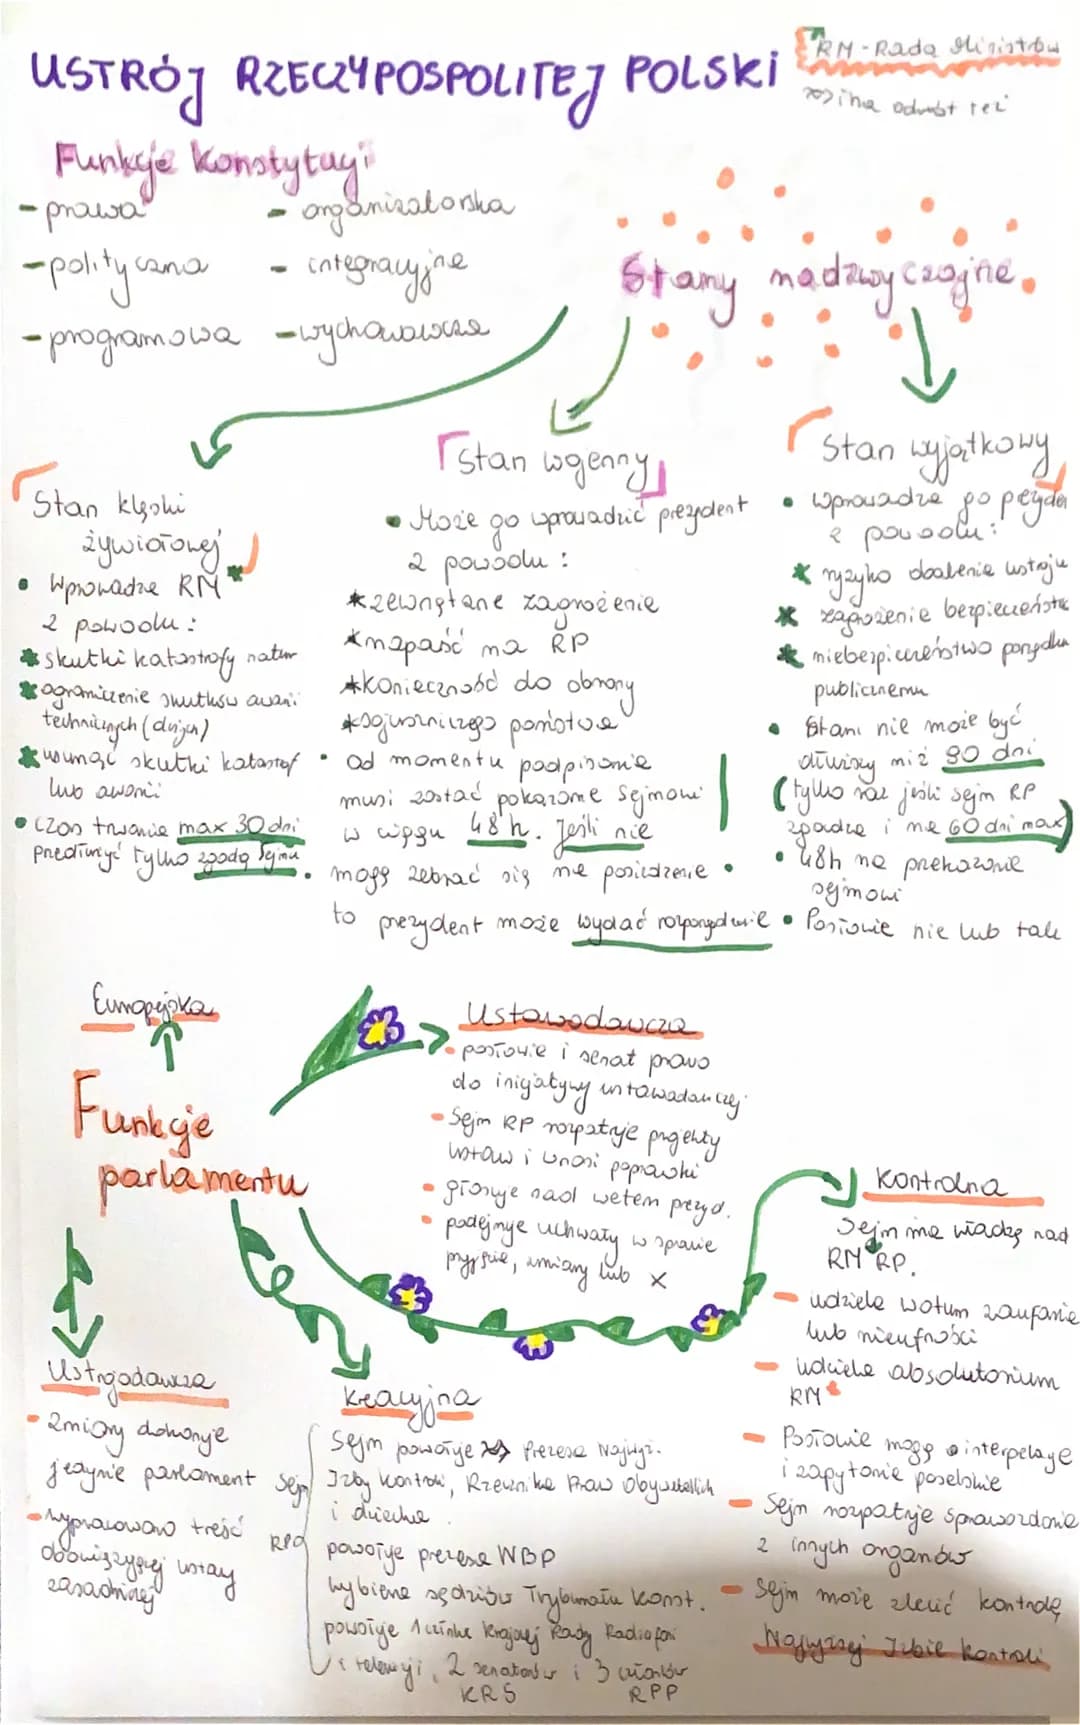 USTRÓJ RZECZYPOSPOLITEJ POLSKI
RM - Rada Ministrów
Funkcje Konstytucji
- prawa
- polityczna
- programowa
- organizatorska
- integracyjne
- wychowawcza
Stany nadzwyczajne
Stan klęski
żywiołowej
• Wprowadza RM*
z powodu:
* skutki katastrofy natur
* ograniczenie skutków awarii
technicznych
* usunąć skutki katastrof
lub awarii
• czas trwania max 30 dni
przedłużyć tylko zgodą Sejmu
Stan wojenny
• Może go wprowadzić prezydent
z powodu:
* zewnętrzne zagrożenie
* napaść na RP
* konieczność do obrony
sojuszniczego państwa
• od momentu podpisania
musi zostać pokazane Sejmowi
w ciągu 48 h. Jeśli nie
mogą zebrać się na posiedzenie
to prezydent może wydać rozporządzenie
Stan wyjątkowy
• wprowadza go
z powodu:
* ryzyko obalenia ustroju
* zagrożenie bezpieczeństw
* niebezpieczeństwo porządku
publicznemu
• Stan nie może być
dłuższy niż 90 dni
(tylko raz jeśli sejm RP
zgadza i na 60 dni max)
• 48h na przekazanie
sejmowi
• Posłowie nie lub tak
Europejska
Funkcje
parlamentu
Ustawodawcza
• posłowie i senat prawo
do inicjatywy ustawodawczej
- Sejm RP rozpatruje projekty
ustaw i wnosi poprawki
• głosuje nad wetem prezyd.
• podejmuje uchwały w sprawie
przyjęcie, zmiany lub x
Kontrolna
Sejm ma władzę nad
RM RP.
- udziela wotum zaufania
lub nieufności
- udziela absolutorium
RM
- Posłowie mogą interpelacje
i zapytanie poselskie
- Sejm rozpatruje sprawozdania
z innych organów
- Sejm może zlecić kontrolę
Najwyższej Izbie Kontroli
Ustrojodawcza
- zmiany dokonuje
jedynie parlament
- wypracowano treść
obowiązującej ustawy
zasadniczej
Kreacyjna
Sejm powołuje Prezesa Najwyż.
Izby Kontroli, Rzecznika Praw Obywatelskich
i dziecka
powołuje prezesa NBP
wybiera sędziów Trybunału Konst.
powołuje członka Krajowej Rady Radiofoni
i telewizji, 2 senatorów i 3 członków
KRS RPP